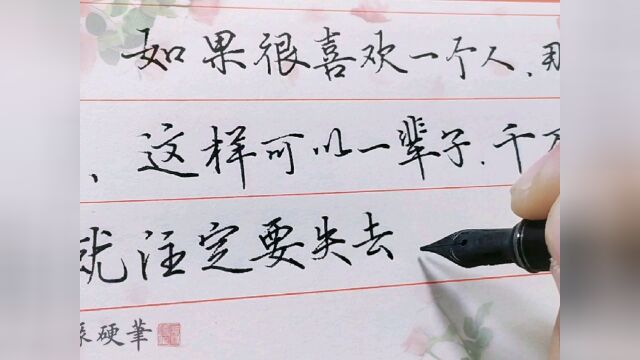 如果很喜欢一个人，
、这样可以一辈子，千
就注定要失去
硬筆